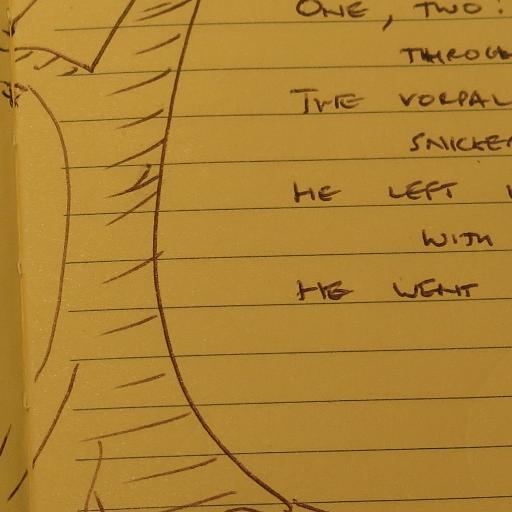 ONE, TWO!
THROUG
THE VORPAL
SNICKE
HE LEFT
WITH
HE WENT